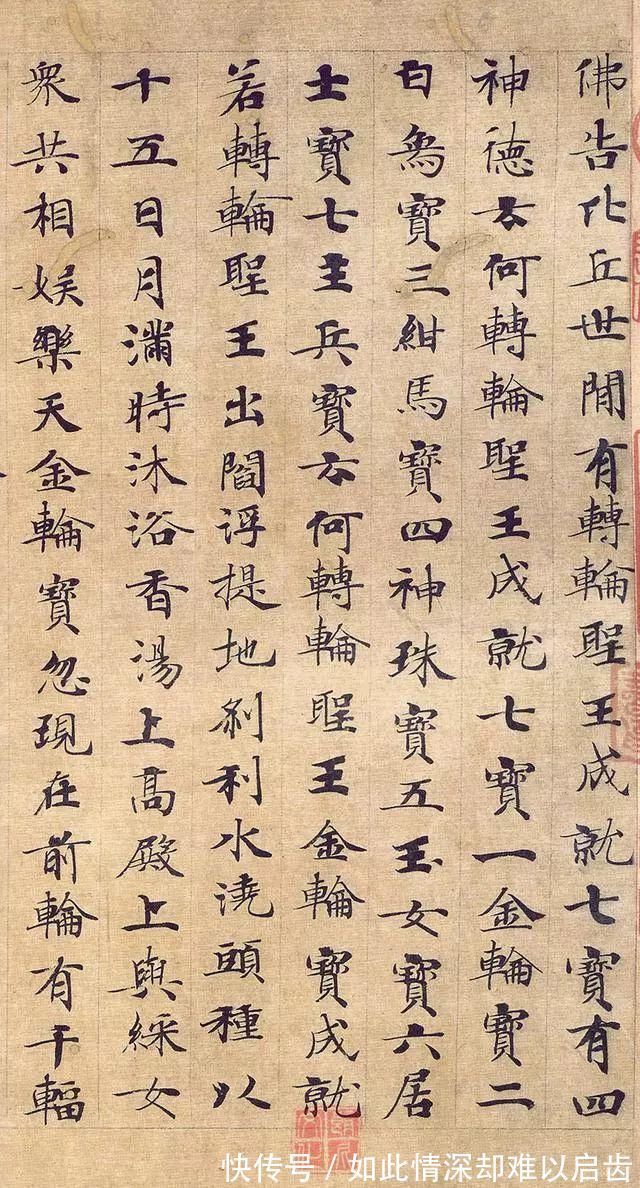 佛告比丘世間有轉輪聖王成就七寶有四
神德云何轉輪聖王成就七寶一金輪寶二
白象寶三紺馬寶四神珠寶五玉女寶六居
士寶七主兵寶云何轉輪聖王金輪寶成就
若轉輪聖王出閻浮提地剎利水澆頭種以
十五日月滿時沐浴香湯上高殿上與綵女
眾共相娛樂天金輪寶忽現在前輪有千輻
快传号 / 如此情深却难以启齿